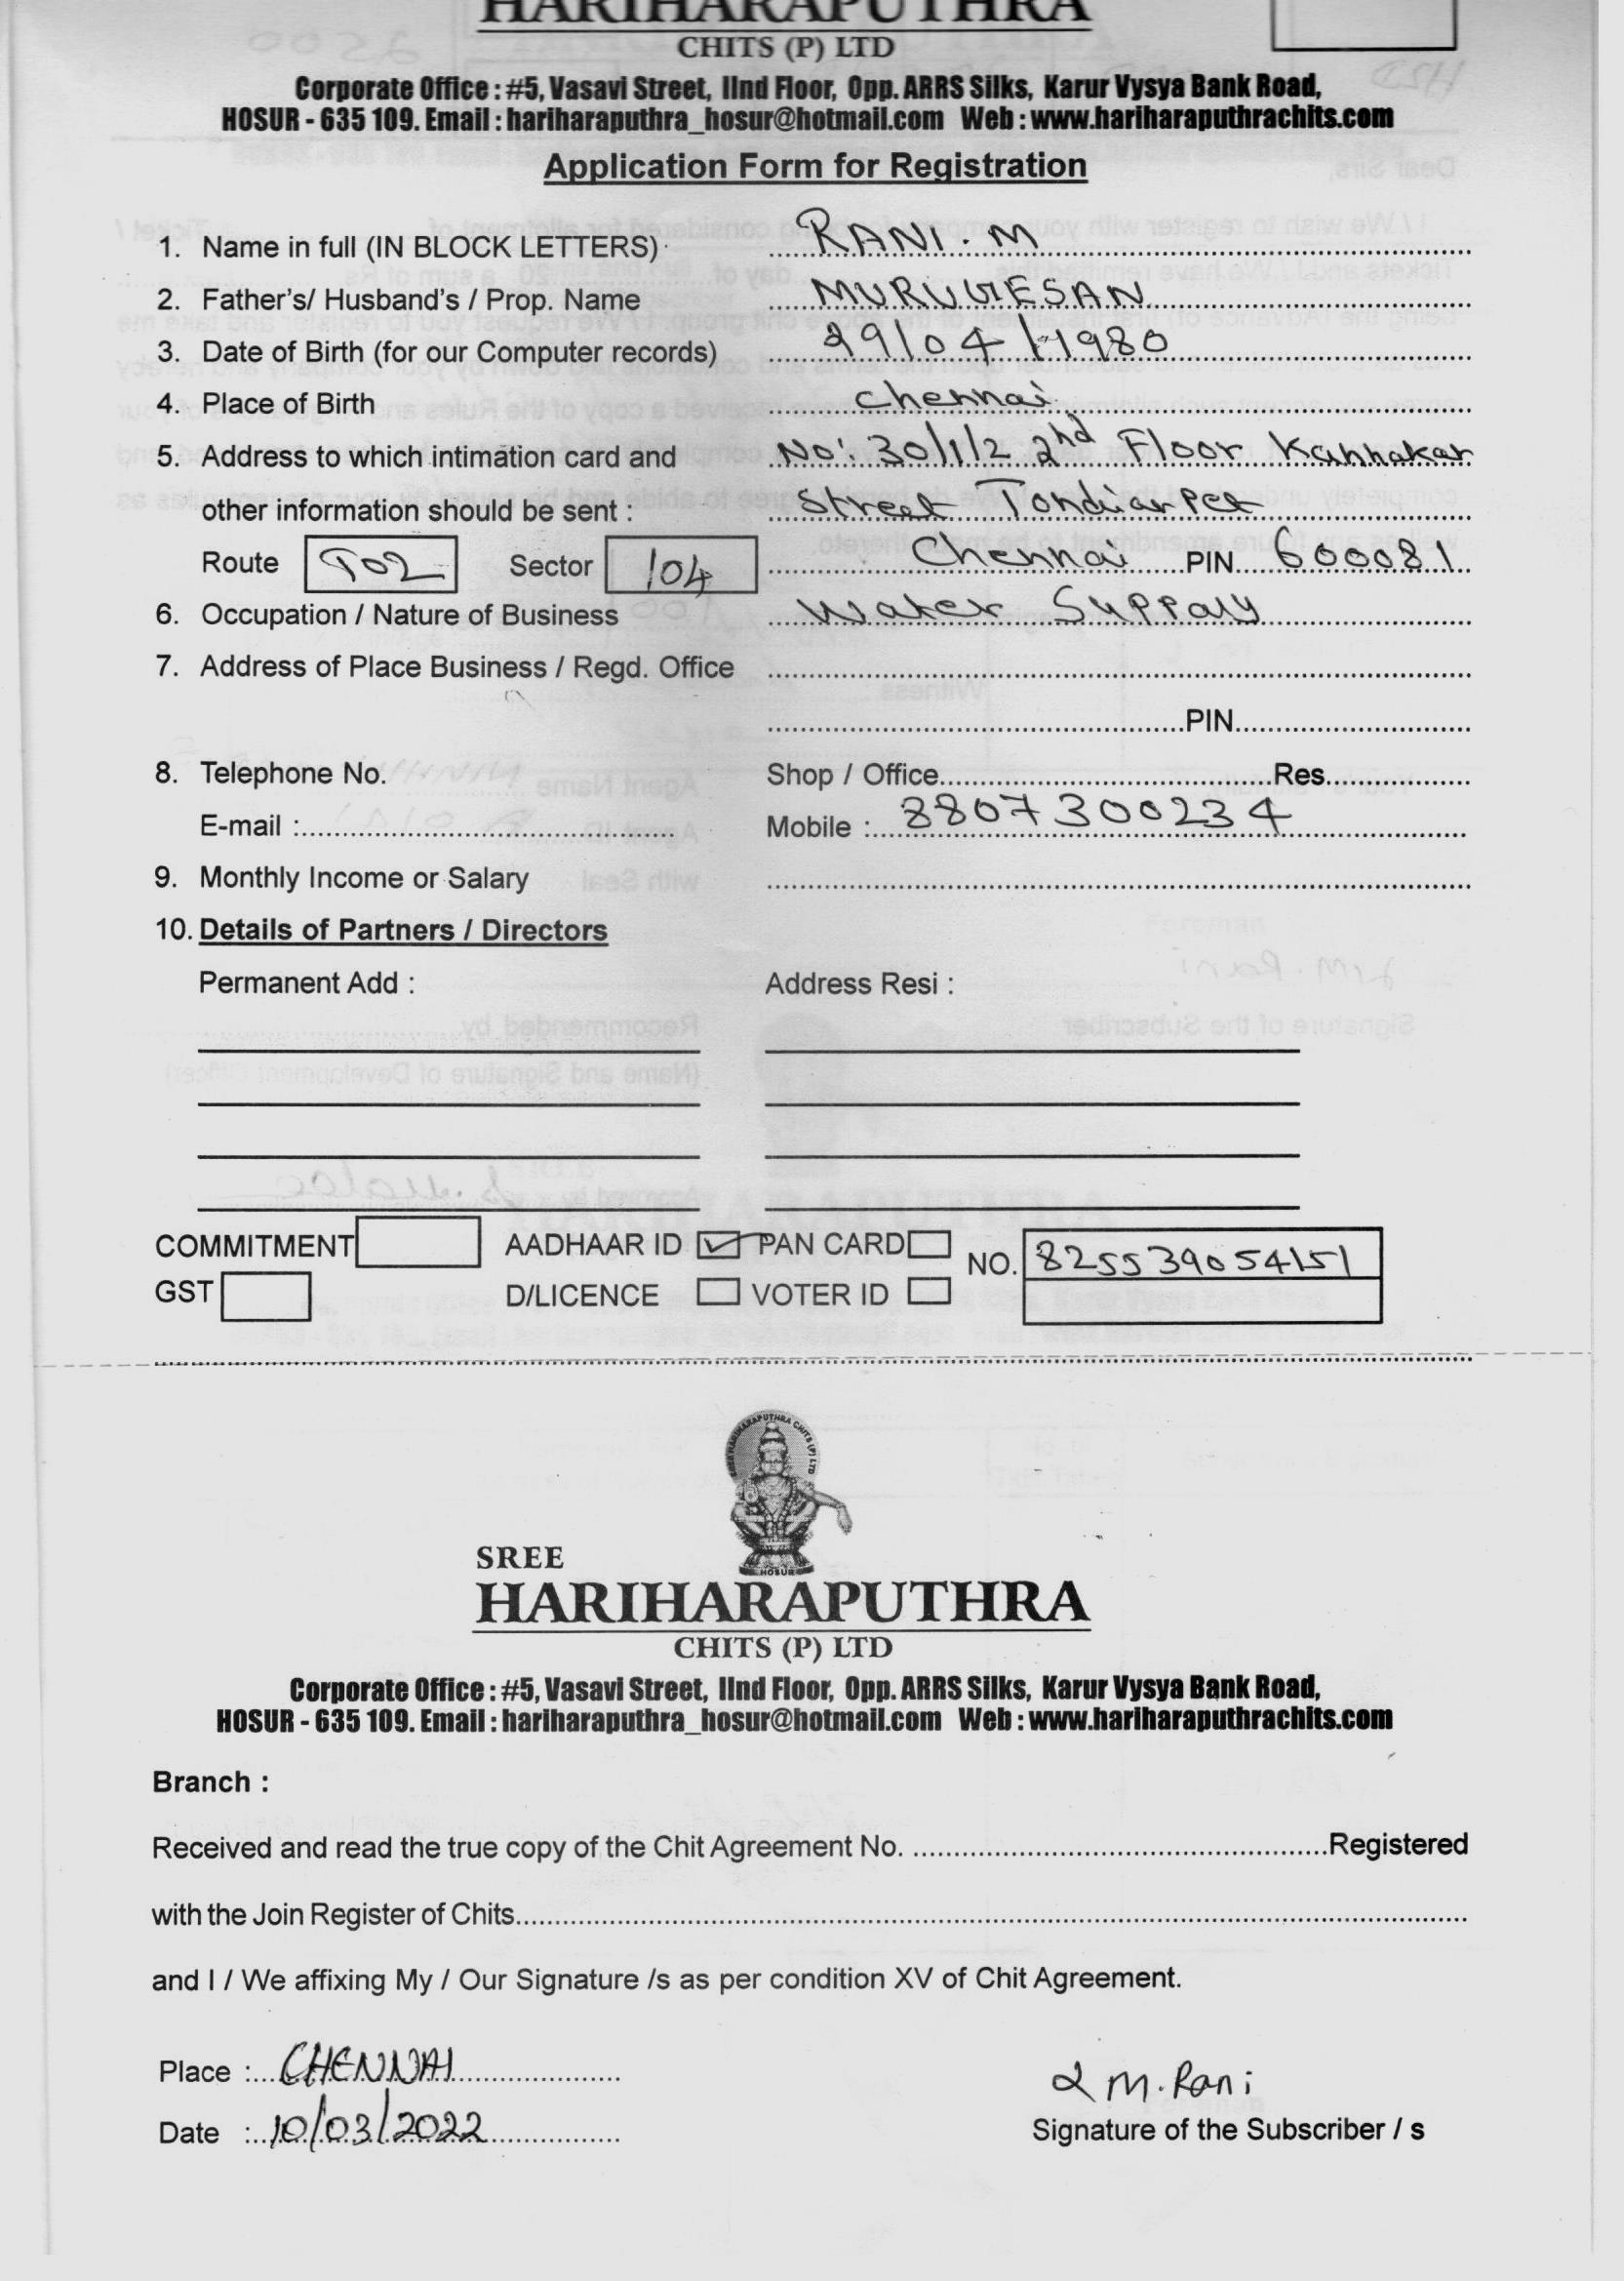 HARIHARAPUTHRA
CHITS (P) LTD
Corporate Office : #5, Vasavi Street, IInd Floor, Opp. ARRS Silks, Karur Vysya Bank Road,
HOSUR - 635 109. Email : hariharaputhra_hosur@hotmail.com Web : www.hariharaputhrachits.com
Application Form for Registration
1. Name in full (IN BLOCK LETTERS) RANI . M
2. Father's/ Husband's / Prop. Name MURUGESAN
3. Date of Birth (for our Computer records) 29/04/1980
4. Place of Birth Chennai
5. Address to which intimation card and No: 30/1/2 2nd Floor Kannakar
other information should be sent : Street Tondiarpet
Route Sector 104 Chennai PIN 600081
6. Occupation / Nature of Business Water Suppaly
7. Address of Place Business / Regd. Office
PIN
8. Telephone No. Shop / Office Res.
E-mail : Mobile : 8807300234
9. Monthly Income or Salary
10. Details of Partners / Directors
Permanent Add : Address Resi :
COMMITMENT AADHAAR ID PAN CARD NO. 825539054151
GST D/LICENCE VOTER ID
SREE HARIHARAPUTHRA CHITS (P) LTD
HOSUR
SREE
HARIHARAPUTHRA
CHITS (P) LTD
Corporate Office : #5, Vasavi Street, IInd Floor, Opp. ARRS Silks, Karur Vysya Bank Road,
HOSUR - 635 109. Email : hariharaputhra_hosur@hotmail.com Web : www.hariharaputhrachits.com
Branch :
Received and read the true copy of the Chit Agreement No. Registered
with the Join Register of Chits
and I / We affixing My / Our Signature /s as per condition XV of Chit Agreement.
Place : CHENNAI
M. Rani
Date : 10/03/2022 Signature of the Subscriber / s